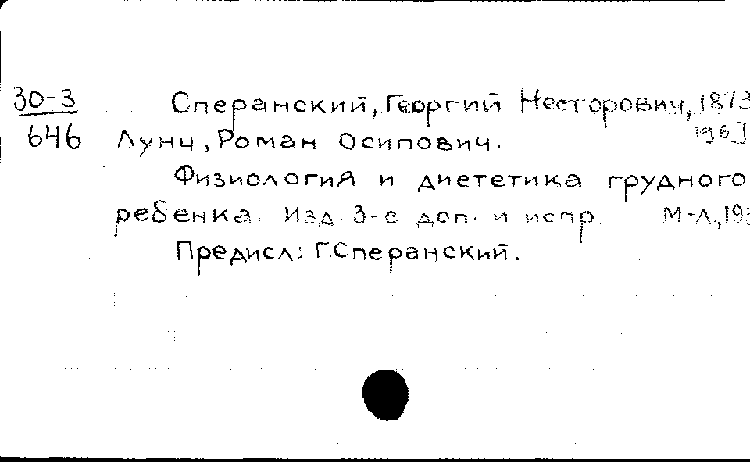 30-3
646
Сперанский, Георгий Несторович, 1873
Лунц, Роман Осипович.
Физиология и диететика грудного
ребенка. Изд. 3-е доп. и испр. М-Л, 193
Предисл: Г. Сперанский.